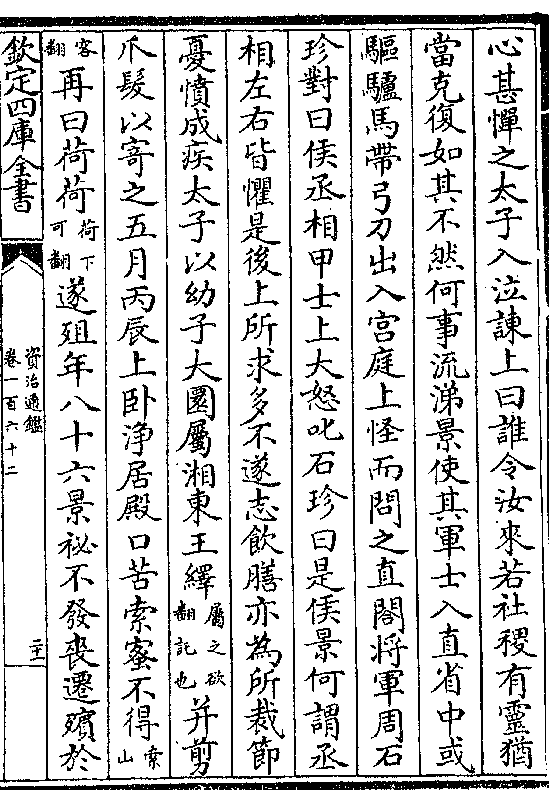 心甚憚之太子入泣諫上曰誰令汝來若社稷有靈猶
當克復如其不然何事流涕景使其軍士入直省中或
驅驢馬帶弓刀出入宫庭上怪而問之直閤将軍周石
珍對曰侯丞相甲士上大怒叱石珍曰是侯景何謂丞
相左右皆懼是後上所求多不遂志飲膳亦為所裁節
憂憤成疾太子以幼子大圜屬湘東王繹屬之欲翻託也并剪
爪髮以寄之五月丙辰上卧浄居殿口苦索蜜不得索山
客翻再曰荷荷荷下可翻遂殂年八十六景祕不發喪遷殯於
欽定四庫全書
資治通鑑
卷一百六十二
二十一